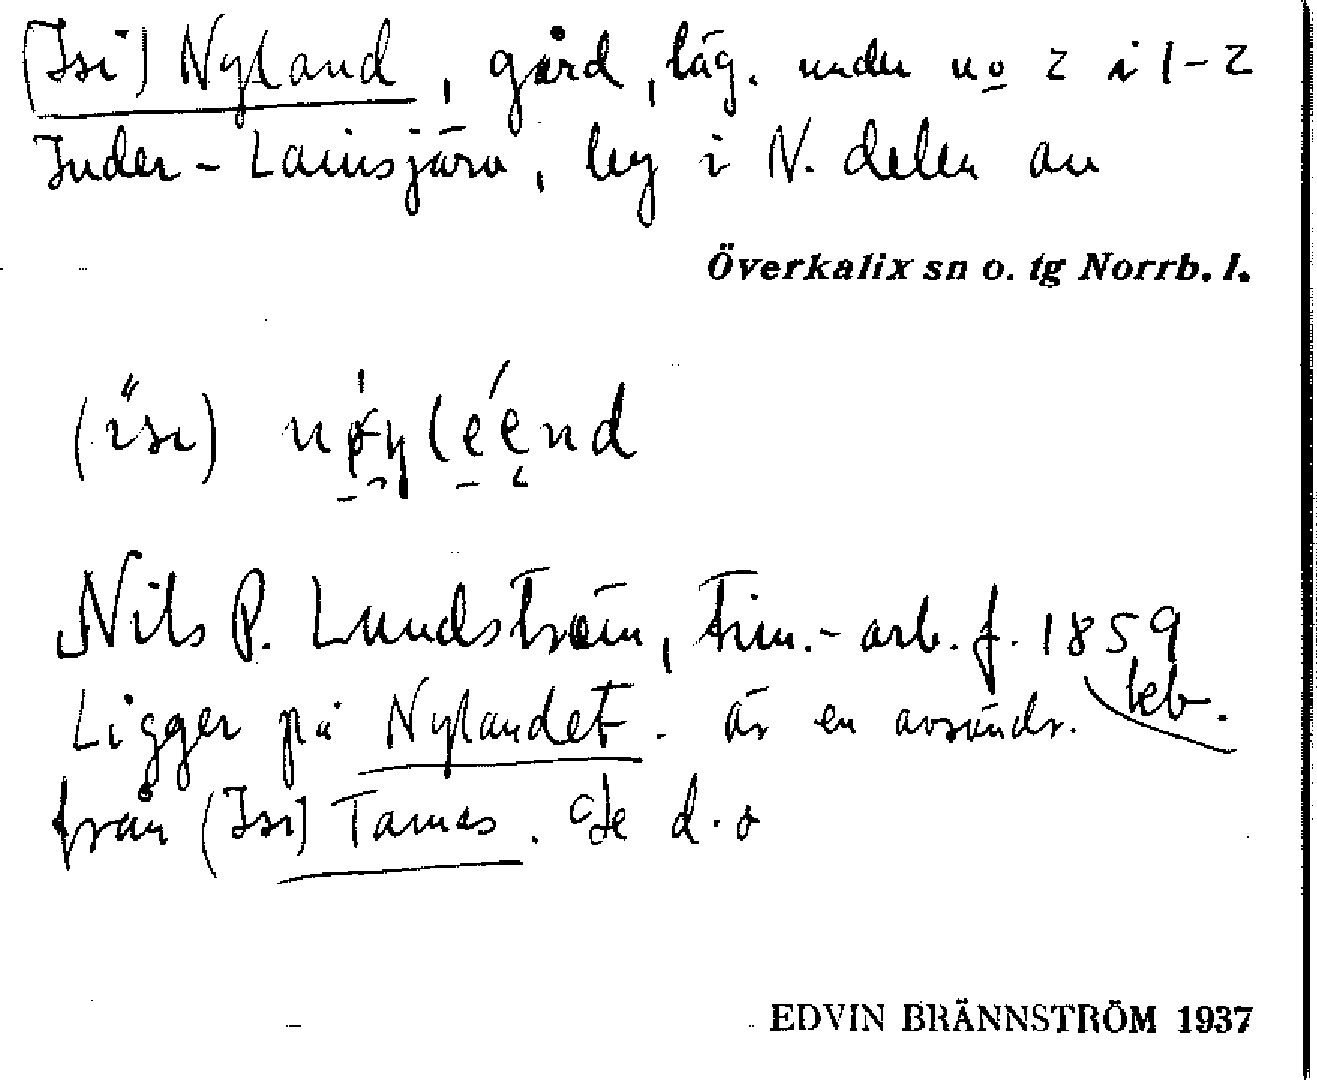 (Isi) Nyland, gård, läg. under no 2 i 1-2
Inder-Lainsjärv, bey i N. delen av
Överkalix sn o. tg Norrb. l.
(isi)
Nils P. Lundström, tim.-arb. f. 1859
leb.
Ligger på Nylandet. är en avsöndr.
från (Isi) Tamas. Se d. o
EDVIN BRÄNNSTRÖM 1937